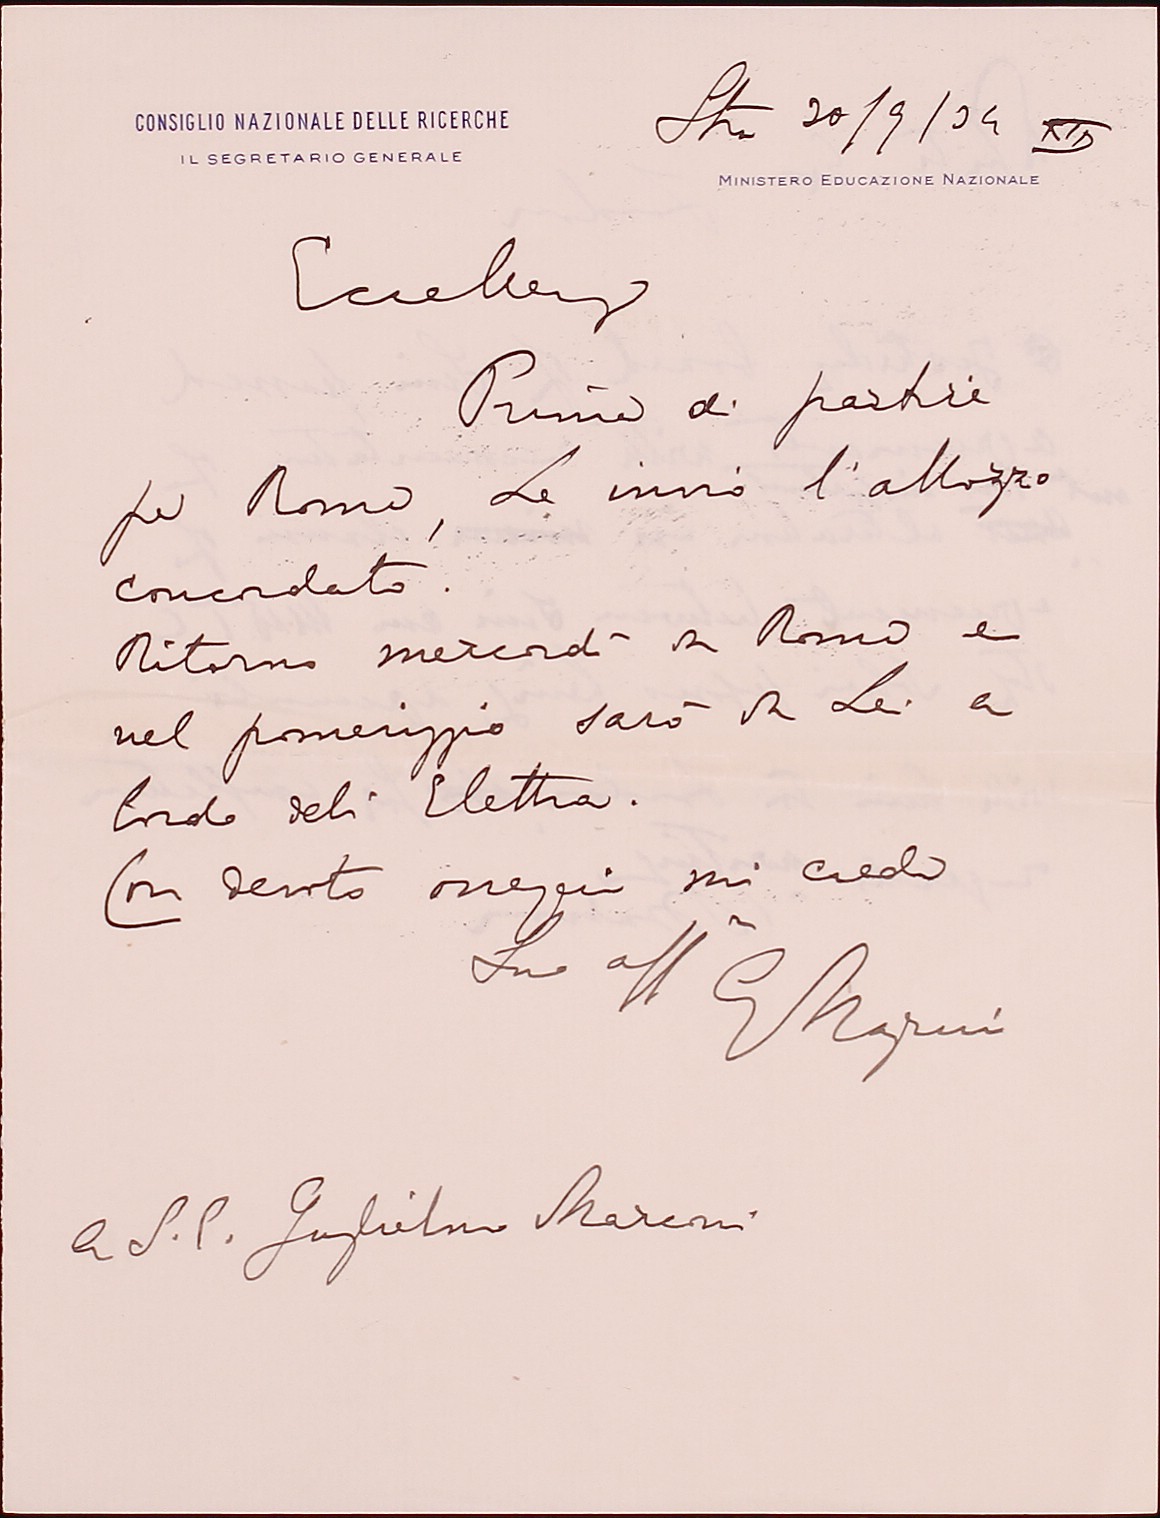 CONSIGLIO NAZIONALE DELLE RICERCHE
IL SEGRETARIO GENERALE
Stra 30/9/34 XII
MINISTERO EDUCAZIONE NAZIONALE
Eccellenza
Prima di partire
per Roma, Le invio l'abbozzo
concordato.
Ritorno mercordì da Roma e
nel pomeriggio sarò da Lei a
bordo dell' Elettra.
Con devoto ossequio mi creda
Suo aff mo G Magrini
a S.E. Guglielmo Marconi